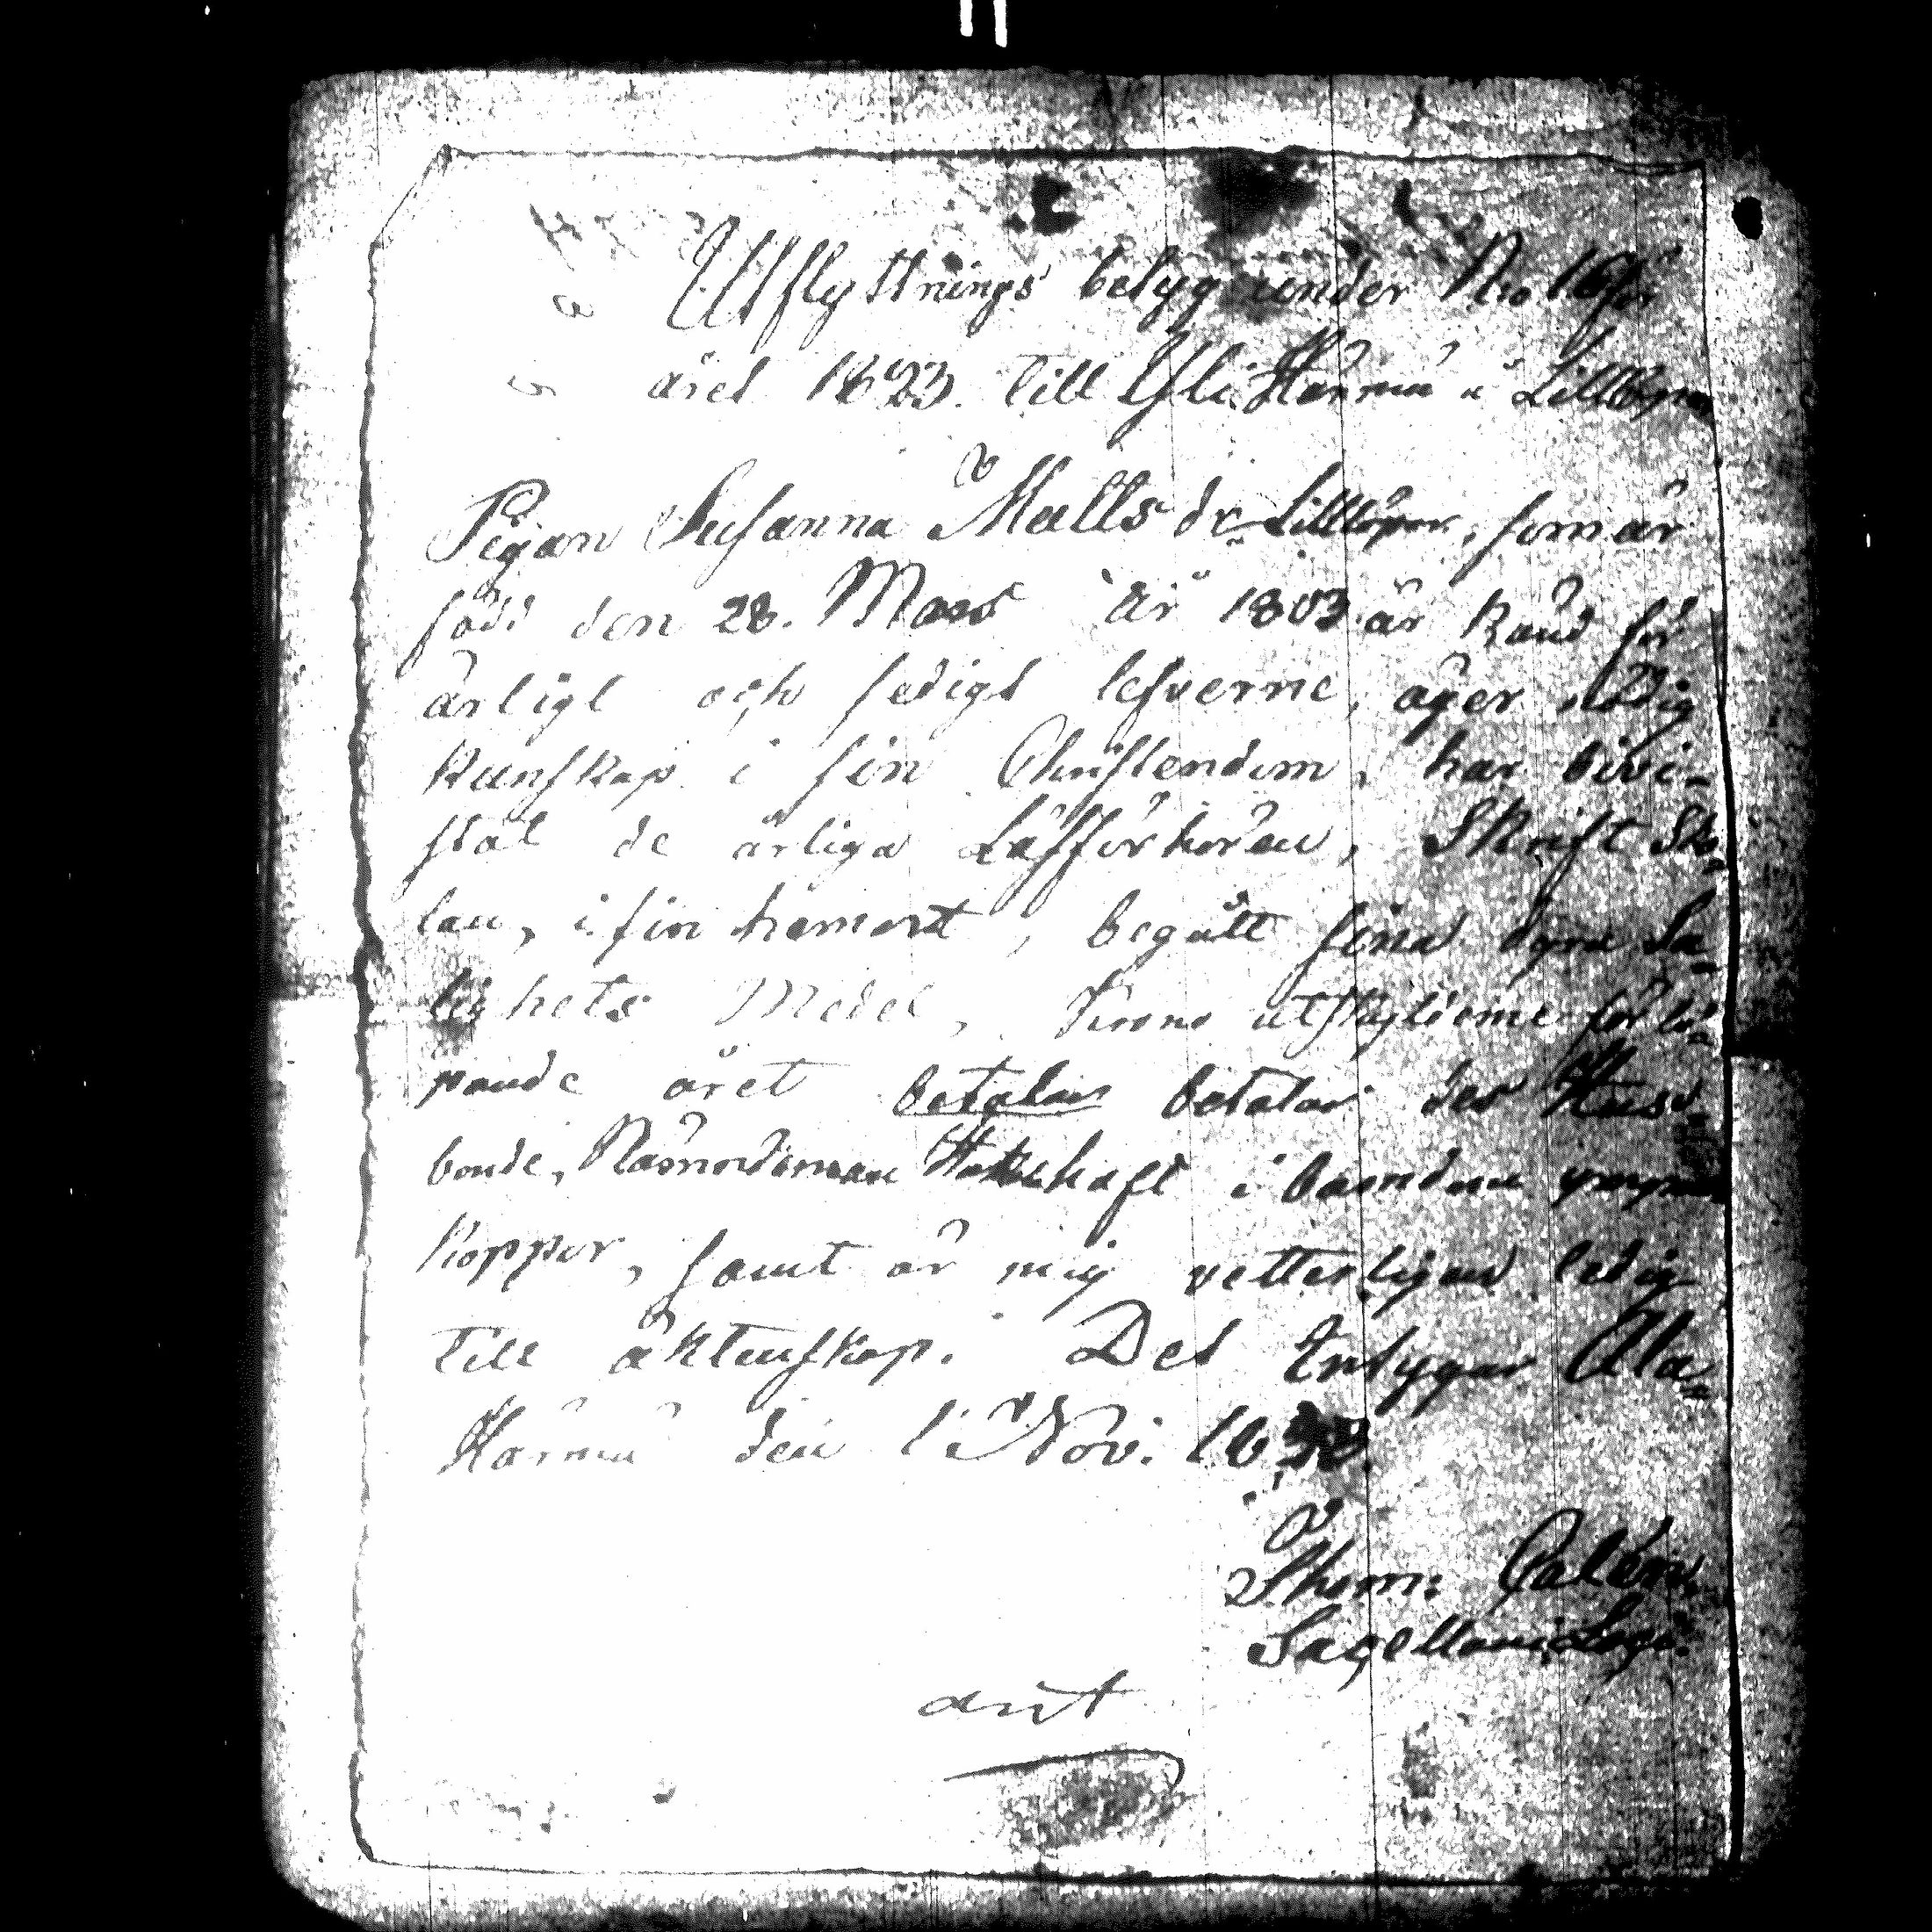 Utflyttnings betyg under N:o 16 för
året 1823. till Yli Härmä
Pigan Susanna Matts dr, som är
född den 28. Mars år 1803 är känd för
ärligt och sedigt lefverne, äger nödig
kunskap i sin Christendom, har bivi-
stat de årliga Läsförhören, Skrift Sko-
lan, i sin hemort, begått sina dyra Sa-
lighets Medel, Krono utskylderne för lö-
pande året betalar betalar des Hus-
bonde, Nämndeman i barndom
koppor, samt är mig vetterligen ledig
till äktenskap. Det intygar Ala-
Härmä den 1 Nov. 18
Thom:
Sacellani
ant